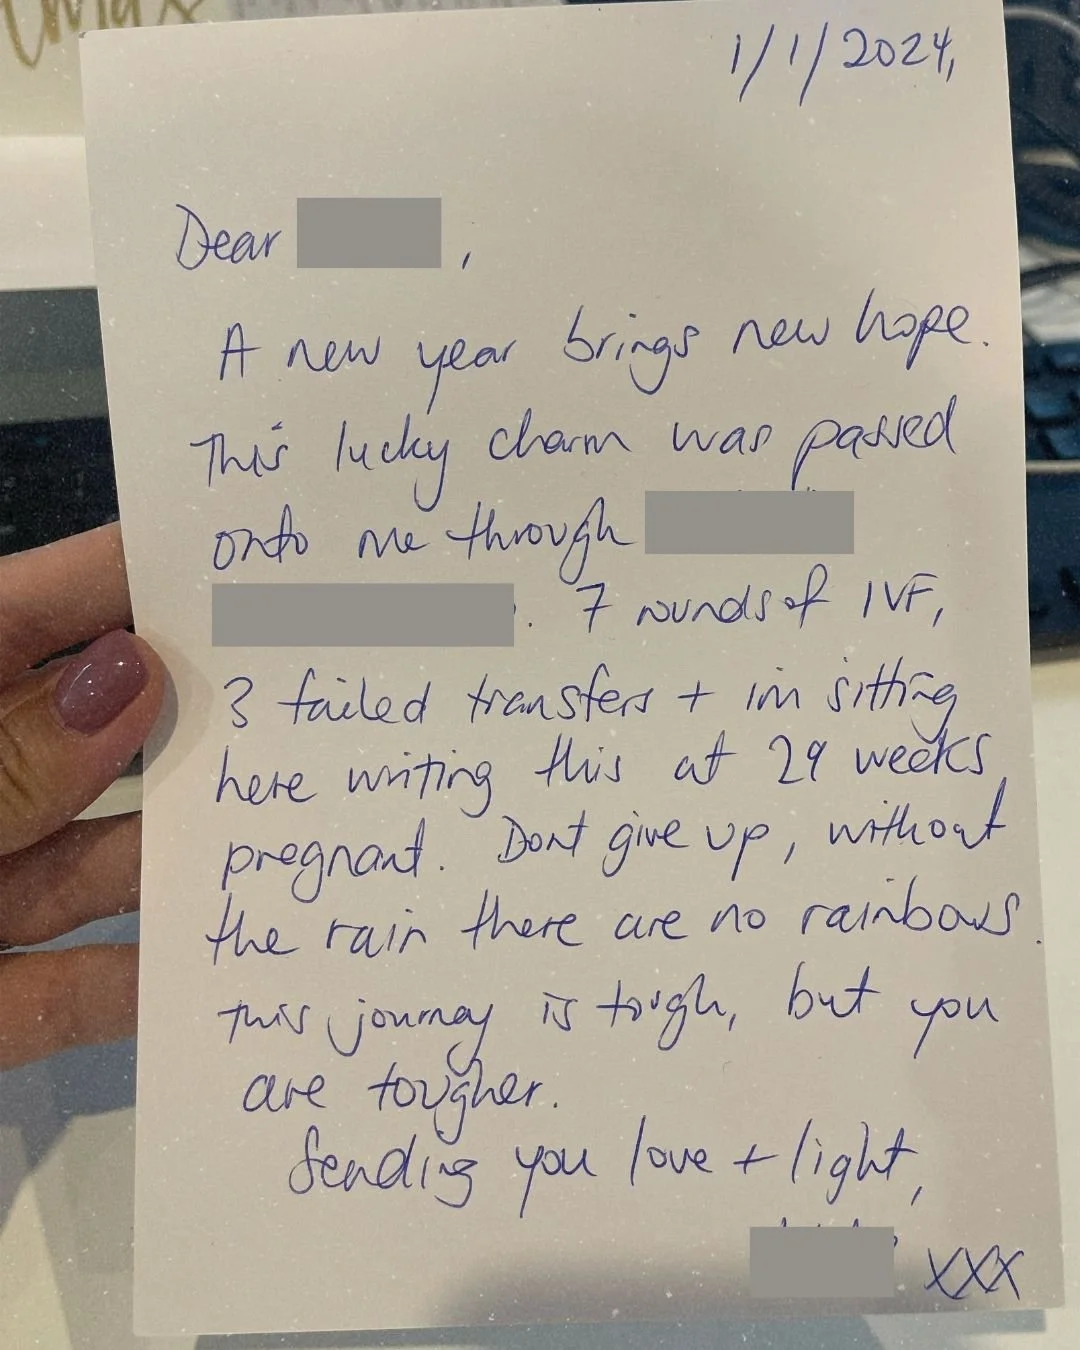 1/1/2024,
Dear ,
A new year brings new hope.
This lucky charm was passed
onto me through
. 7 rounds of IVF,
3 failed transfers + im sitting
here writing this at 29 weeks
pregnant. Dont give up, without
the rain there are no rainbows.
This journey is tough, but you
are tougher.
Sending you love + light,
xxx